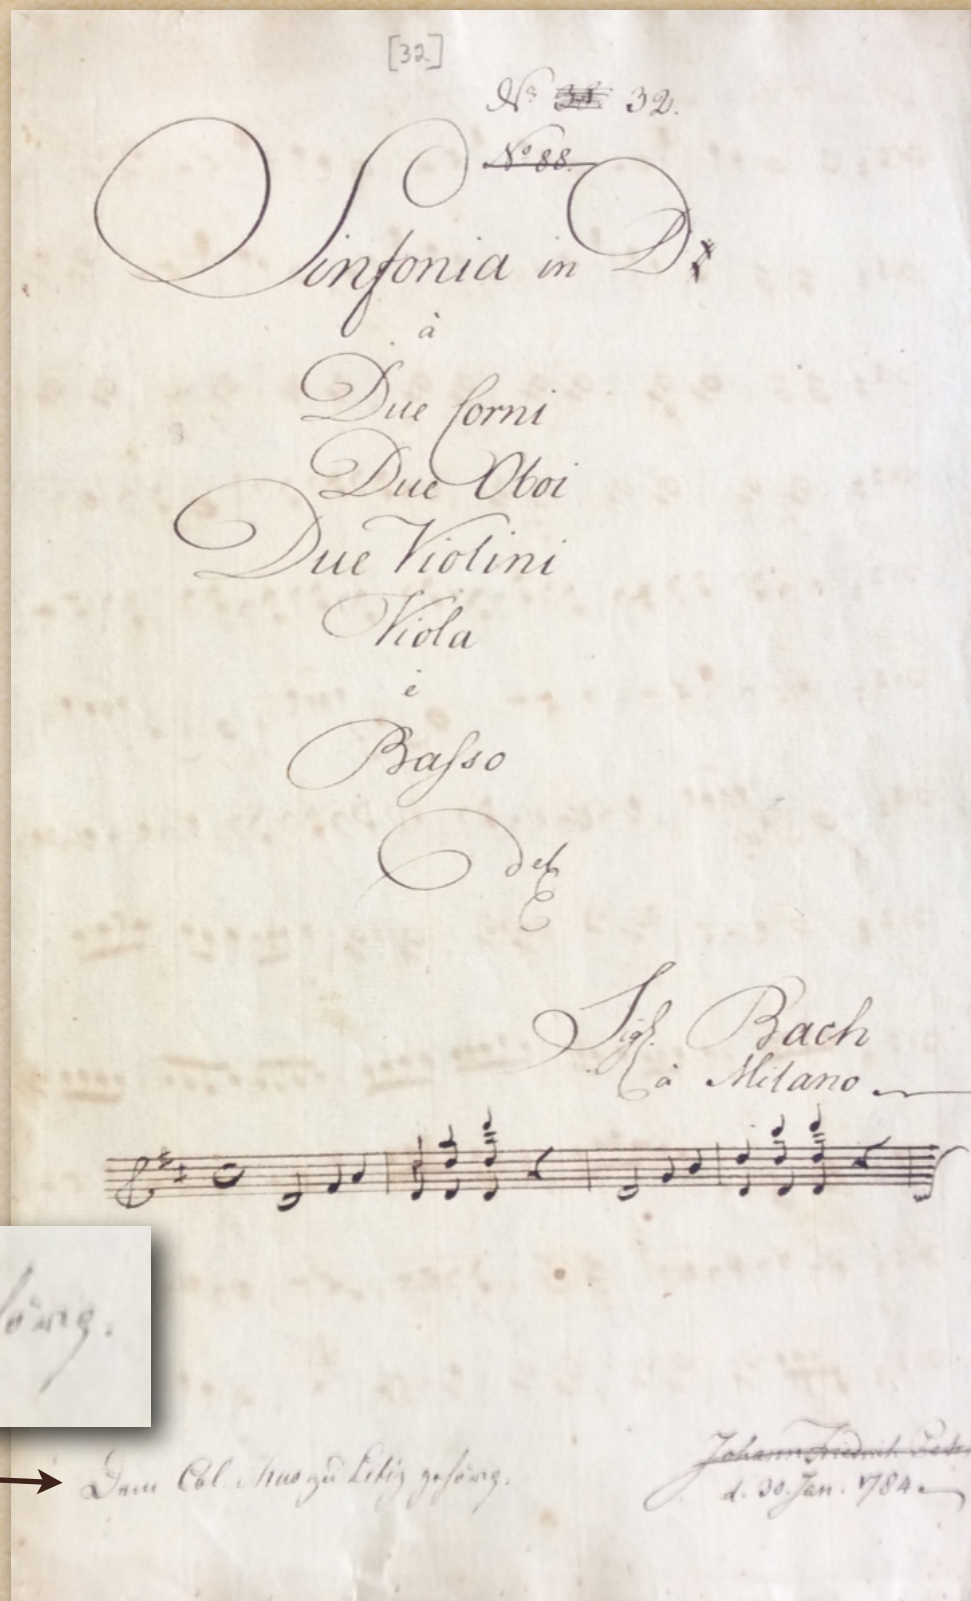 [32]
No 32.
No 88.
Sinfonia in D♯
à
Due Corni
Due Oboi
Due Violini
Viola
è
Basso
del
Sigr. Bach
à Milano
hörig.
Dem Col. Mus. zu Litiz gehörig.
Johann Friedrich Peter
d. 30. Jan. 1784